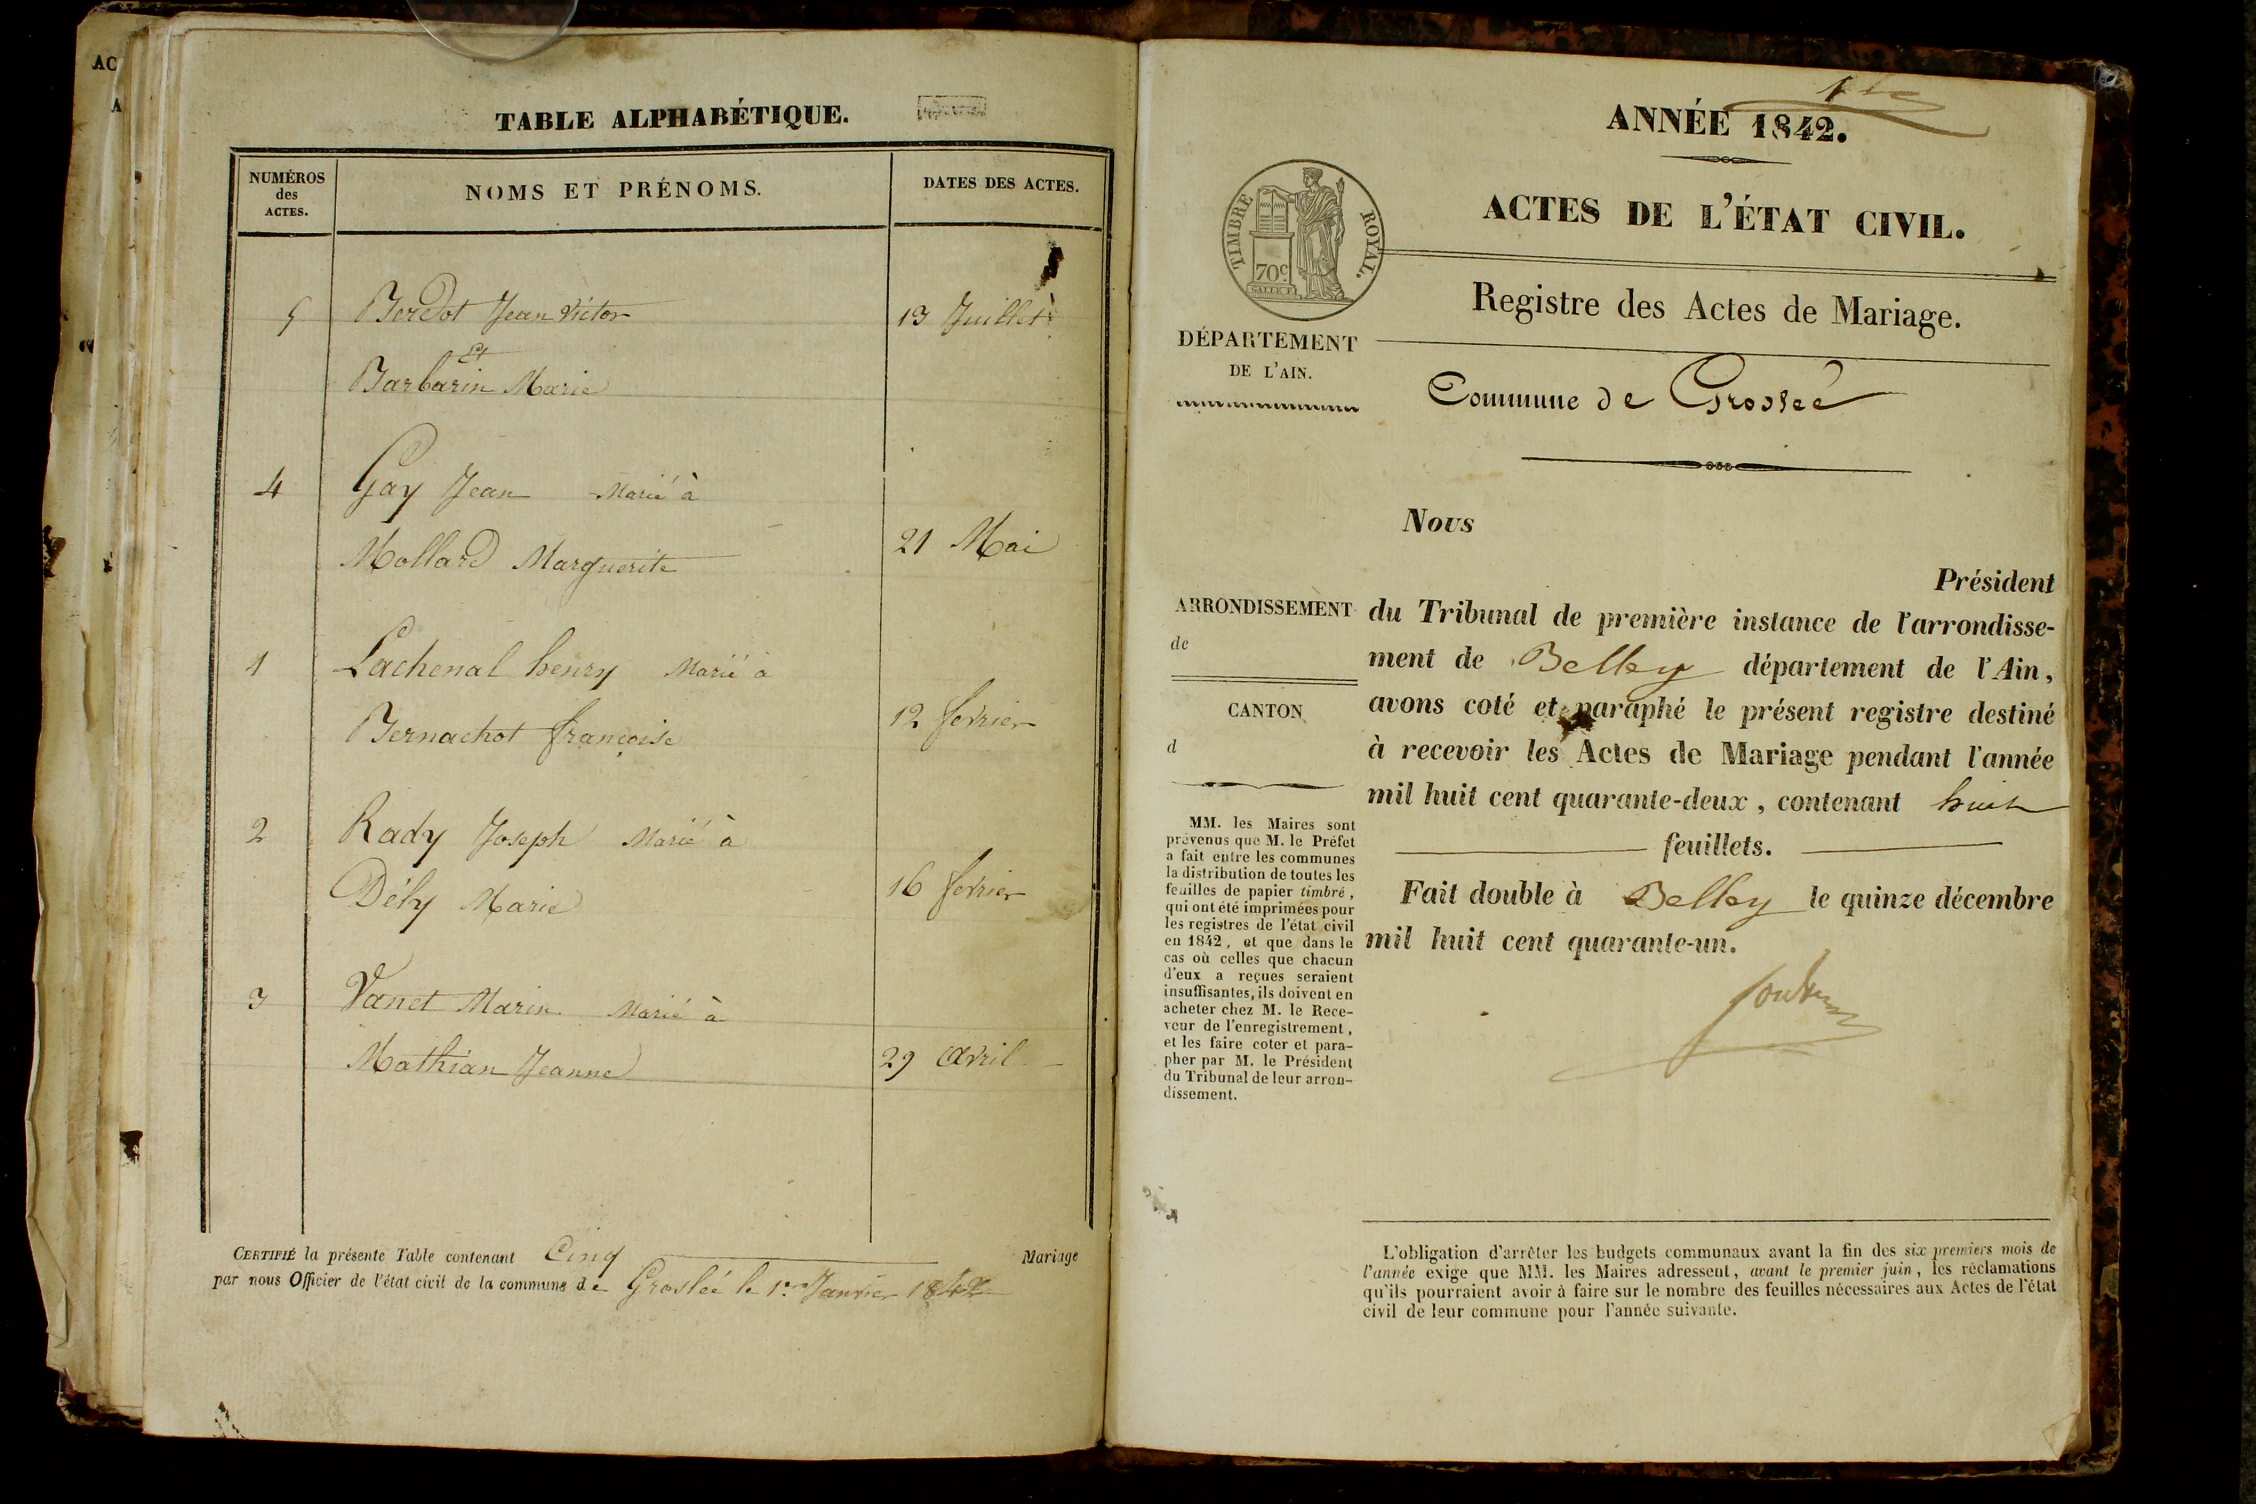 AC
A
TABLE ALPHABÉTIQUE.
NUMÉROS
des
ACTES.
NOMS ET PRÉNOMS.
DATES DES ACTES.
5 Berdot Jean Victor 13 Juillet
Et
Barbarin Marie
4 Gay Jean Marié à
Mollard Marguerite 21 Mai
1 Lachenal henry Marié à
Bernachot françoise 12 fevrier
2 Rady Joseph Marié à
Dély Marie 16 fevrier
3 Vanet Marin Marié à
Mathian Jeanne 29 Avril
CERTIFIÉ la présente Table contenant Cinq Mariage
par nous Officier de l'état civil de la commune de Groslée le 1er Janvier 1842
ANNÉE 1842.
ACTES DE L'ÉTAT CIVIL.
TIMBRE ROYAL.
70c
Registre des Actes de Mariage.
DÉPARTEMENT
DE L'AIN.
Commune de Groslée
Nous
Président
ARRONDISSEMENT
de
CANTON
d
du Tribunal de première instance de l'arrondisse-
ment de Belley département de l'Ain,
avons coté et paraphé le présent registre destiné
à recevoir les Actes de Mariage pendant l'année
mil huit cent quarante-deux, contenant huit
feuillets.
Fait double à Belley le quinze décembre
mil huit cent quarante-un.
MM. les Maires sont
prévenus que M. le Préfet
a fait entre les communes
la distribution de toutes les
feuilles de papier timbré,
qui ont été imprimées pour
les registres de l'état civil
en 1842, et que dans le
cas où celles que chacun
d'eux a reçues seraient
insuffisantes, ils doivent en
acheter chez M. le Rece-
veur de l'enregistrement,
et les faire coter et para-
pher par M. le Président
du Tribunal de leur arron-
dissement.
L'obligation d'arrêter les budgets communaux avant la fin des six premiers mois de
l'année exige que MM. les Maires adressent, avant le premier juin, les réclamations
qu'ils pourraient avoir à faire sur le nombre des feuilles nécessaires aux Actes de l'état
civil de leur commune pour l'année suivante.